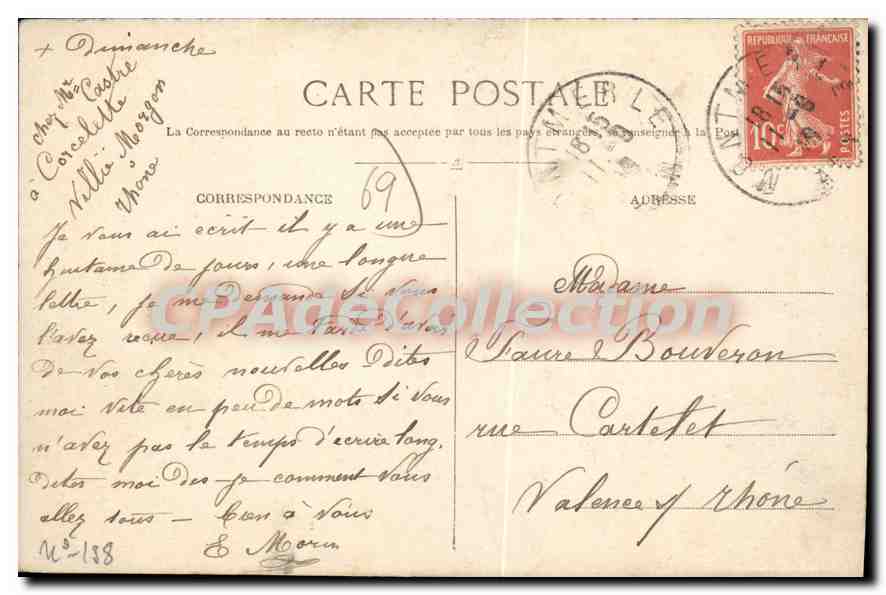 + Dimanche
chez Mr Castre
à Corcelette
Villié Morgon
Rhône
CARTE POSTALE
La Correspondance au recto n'étant pas acceptée par tous les pays étrangers, se renseigner à la Poste
CORRESPONDANCE
69
Je vous ai écrit il y a une
huitaine de jours, une longue
lettre, je me demande si vous
l'avez reçue, il me tarde d'avoir
de vos chères nouvelles Dites
moi vite en peu de mots si vous
n'avez pas le temps d'écrire long.
Dites moi des je comment vous
allez tous — bien à vous
E Morin
N°-138
ADRESSE
Madame
Faure Bouveron
rue Cartelet
Valence s/ rhône
REPUBLIQUE FRANÇAISE
10
POSTES
MONTMERLE
MONTMERLE
CPAdeCollection.com